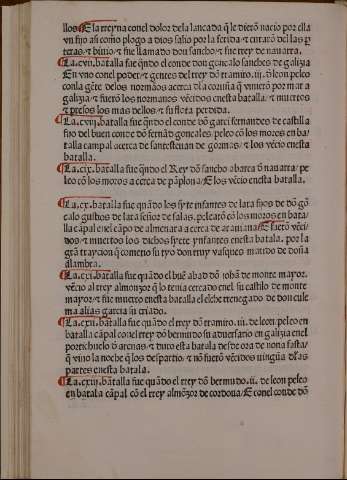 llos. E la reyna con el dolor de la lançada q̃ le dierõ nacio por ella
vn fijo assi como plogo a dios salio por la ferida ⁊ curarõ del as p
teras ⁊ biuio ⁊ fue llamado don sancho ⁊ fue rrey de nauarra.
La .cvij. batalla fue qñdo el conde don gonçalo sanches de galizia
En vno conel poder ⁊ gentes del rrey dõ rramiro .iij. đ leon peleo
con la gẽte delos normãos acerca đla coruña q̃ vinierõ por mar a
galizia ⁊ fuerõ los normanos vẽcidos enesta batalla ⁊ muertos
⁊ presos los mas dellos ⁊ su flota perdida.
La .cviij. batalla fue qñdo el conde dõ garci fernandes de castilla
fijo del buen conde dõ fernãd gonçales peleo cõ los moros en ba/
talla campal acerca de santesteuan de gormas ⁊ los vẽcio enesta
batalla.
La .cix. batalla fue qñdo el Rey dõ sancho abarca đ nauarra pe
leo cõ los moros a cerca de pãplona E los vẽcio enesta batalla.
La .cx. batalla fue quãdo los syete ynfantes de lara fijos de dõ gõ
çalo gustios de lara señor de salas pelearõ cõ los moros en bata/
lla cãpal enel cãpo de almenara a cerca de arauiana E fuerõ vẽci/
dos ⁊ muertos los dichos syete ynfantes enesta batala. por la
grã traycion q̃ cometio su tyo don rruy vasques marido de doña
alambra.
La .cxi. batalla fue quãdo el buẽ abad dõ johã de monte mayor
vẽcio al rrey almonzor q̃ lo tenia cercado enel su castillo de monte
mayor ⁊ fue muerto enesta batalla el elche rrenegado de don çule
ma alias garcia su criado.
La .cxij. batalla fue quãdo el rrey dõ rramiro .iij. de leon peleo en
batalla cãpal con el rrey dõ bermudo su aduersario en galizia enel
portichuelo đ arenas ⁊ duro esta batala desde ora de nona fasta
q̃ vino la noche q̃ los despartio ⁊ nõ fuerõ vẽcidos ningũa đlas
partes enesta batala.
La .cxiij. batalla fue quãdo el rrey dõ bermudo .ij. de leon peleo
en batala cãpal cõ el rrey almõzor de cordoua E con el conde dõ